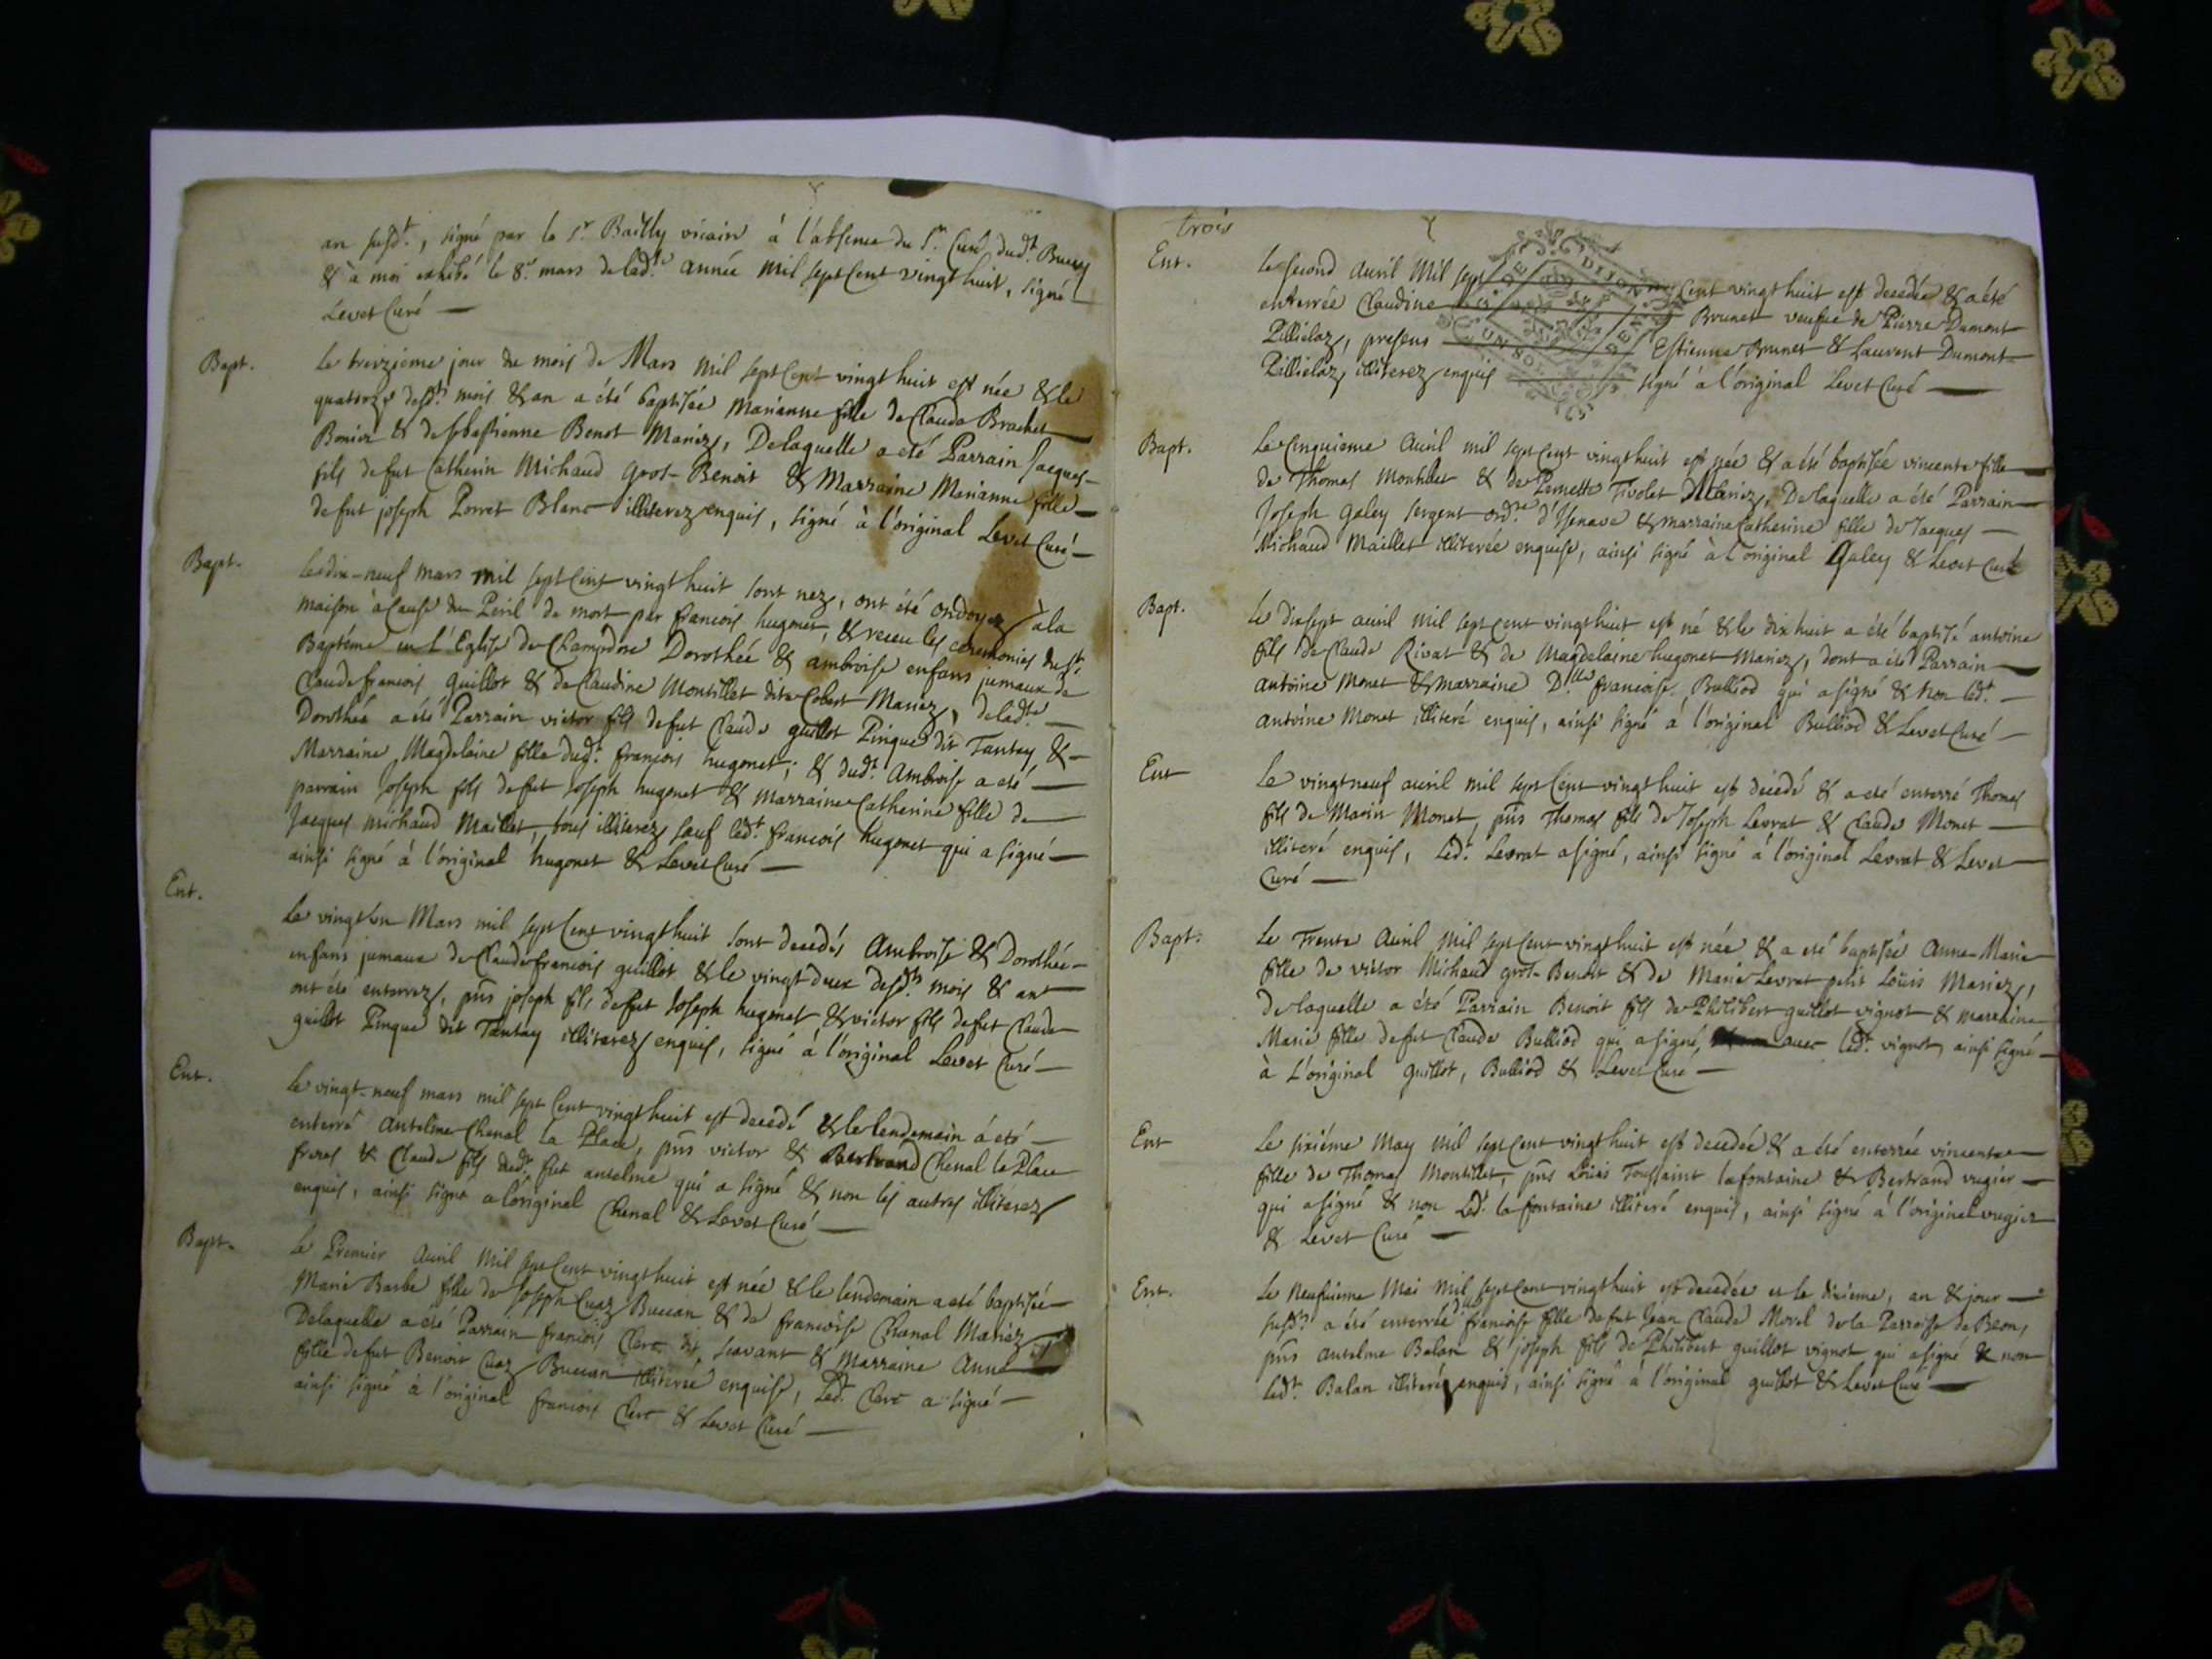 an susd.t, signé par le s.r Bailly vicaire à l'absence du s.r Curé dud.t
& à moi exhibé le 8.e mars de lad.te année mil sept cent vingt huit, signé
Levet Curé —
Bapt.
Le treizieme jour du mois de Mars mil sept Cent vingt huit est née & le
quatorze desd.ts mois & an a été baptisée Marianne fille de Claude Brachet
Bonier & de sebastienne Benot Mariez, Delaquelle a eté Parrain Jacques
fils de fut Catherin Michaud gros-Benoit & Marraine Marianne fille
de fut joseph Porret Blanc illiterez enquis, signé à l'original Levet Curé —
Bapt.
Le dix-neuf mars mil sept Cent vingt huit sont nez, ont été ondoyez à la
maison à Cause du Peril de mort par francois hugonet, & receu les ceremonies du s.t
Baptême en l'Eglise de Champdore Dorothée & ambroise enfans jumaux de
Claude francois guillot & de Claudine Montillet dite Colest Mariez, de lad.te
Dorothée a été Parrain victor fils de fut Claude guillot Pingue dit Tantay &
Marraine Magdelaine fille dud.t françois hugonet; & dud.t Ambroise a eté
parrain Joseph fils de fut Joseph hugonet & marraine Catherine fille de
Jacques Michaud Maillet, tous illiterez sauf led.t francois hugonet qui a signé —
ainsi signé à l'original hugonet & Levet Curé —
Ent.
Le vingt un Mars mil sept Cent vingt huit sont decedés Ambroise & Dorothée
enfans jumaux de Claude francois guillot & le vingt deux desd.ts mois & ant
ont été enterrez, pñs joseph fils de fut Joseph hugonet & victor fils de fut Claude
guillot Pingue dit Tantay illiterez enquis, signé à l'original Levet Curé —
Ent.
Le vingt-neuf mars mil sept Cent vingt huit est decedé & le lendemain à eté
enterré Antelme Chenal la Place, pñs victor & Bertrand Chenal la Place
freres & Claude fils dud.t fut antelme qui a signé & non les autres illiterez
enquis, ainsi signé a l'original Chenal & Levet Curé —
Bapt.
Le Premier Avril mil sept Cent vingt huit est née & le lendemain a eté baptisée
Marie Barbe fille de Joseph Cuaz Buccan & de francoise Chanal Mariez
Delaquelle a été Parrain francois Clerc dit scavant & Marraine Anne
fille de fut Benoit Cuaz Buccan illiterée enquise, Led.t Clerc a signé —
ainsi signé à l'original francois Clerc & Levet Curé —
trois
Ent.
Le second Avril Mil sept Cent vingt huit est decedée & a été
enterrée Claudine Brunet veufue de Pierre Dumont
Pillielaz, presens Estienne Brunet & Laurent Dumont
Pillielaz illiterez enquis signé à l'original Levet Curé —
Bapt.
Le Cinquieme Avril mil sept Cent vingt huit est née & a été baptisée vincente fille
de Thomas Montillet & de Pernette Tivolet Mariez, De laquelle a été Parrain
Joseph galey sergent ord.re d'Isenave & marraine Catherine fille de Jacques
Michaud Maillet illiterée enquise, ainsi signé à l'original Galey & Levet Curé
Bapt.
Le dix sept avril mil sept Cent vingt huit est né & le dix huit a été baptisé antoine
fils de Claude Rivat & de Magdelaine hugonet Mariez, dont a été Parrain
Antoine Monet & marraine D.lle francoise Bulliod qui a signé & non led.t
Antoine Monet illiteré enquis, ainsi signé à l'original Bulliod & Levet Curé —
Ent
Le vingt neuf avril mil sept Cent vingt huit est decedé & a eté enterré Thomas
fils de Marin Monet, pñs Thomas fils de Joseph Levrat & Claude Monet
illiteré enquis, Led.t Levrat a signé, ainsi signé à l'original Levrat & Levet
Curé —
Bapt.
Le Trente Avril Mil sept Cent vingt huit est née & a eté baptisée Anne-Marie
fille de victor Michaud gros-Benoit & de Marie Levrat petit Loüis Mariez,
de laquelle a été Parrain Benoit fils de Philibert guillot vignot & marraine
Marie fille de fut Claude Bulliod qui a signé, avec led.t vignot, ainsi signé
à L'original guillot, Bulliod & Levet Curé —
Ent
Le sixiéme May mil sept Cent vingt huit est decedée & a été enterrée vincente
fille de Thomas Montillet, pñs Loüis Toussaint lafontaine & Bertrand vugier
qui a signé & non Led.t la fontaine illiteré enquis, ainsi signé à l'original vugier
& Levet Curé —
Ent.
Le Neufuieme Mai mil sept Cent vingt huit est decedée et le dixieme, an & jour
susd.ts a été enterrée d.lle francoise fille de fut Jean Claude Morel de la Parroisse de Beon,
pñs Antelme Balan & joseph fils de Philibert guillot vignot qui a signé & non
led.t Balan illiteré enquis, ainsi signé à l'original guillot & Levet Curé —